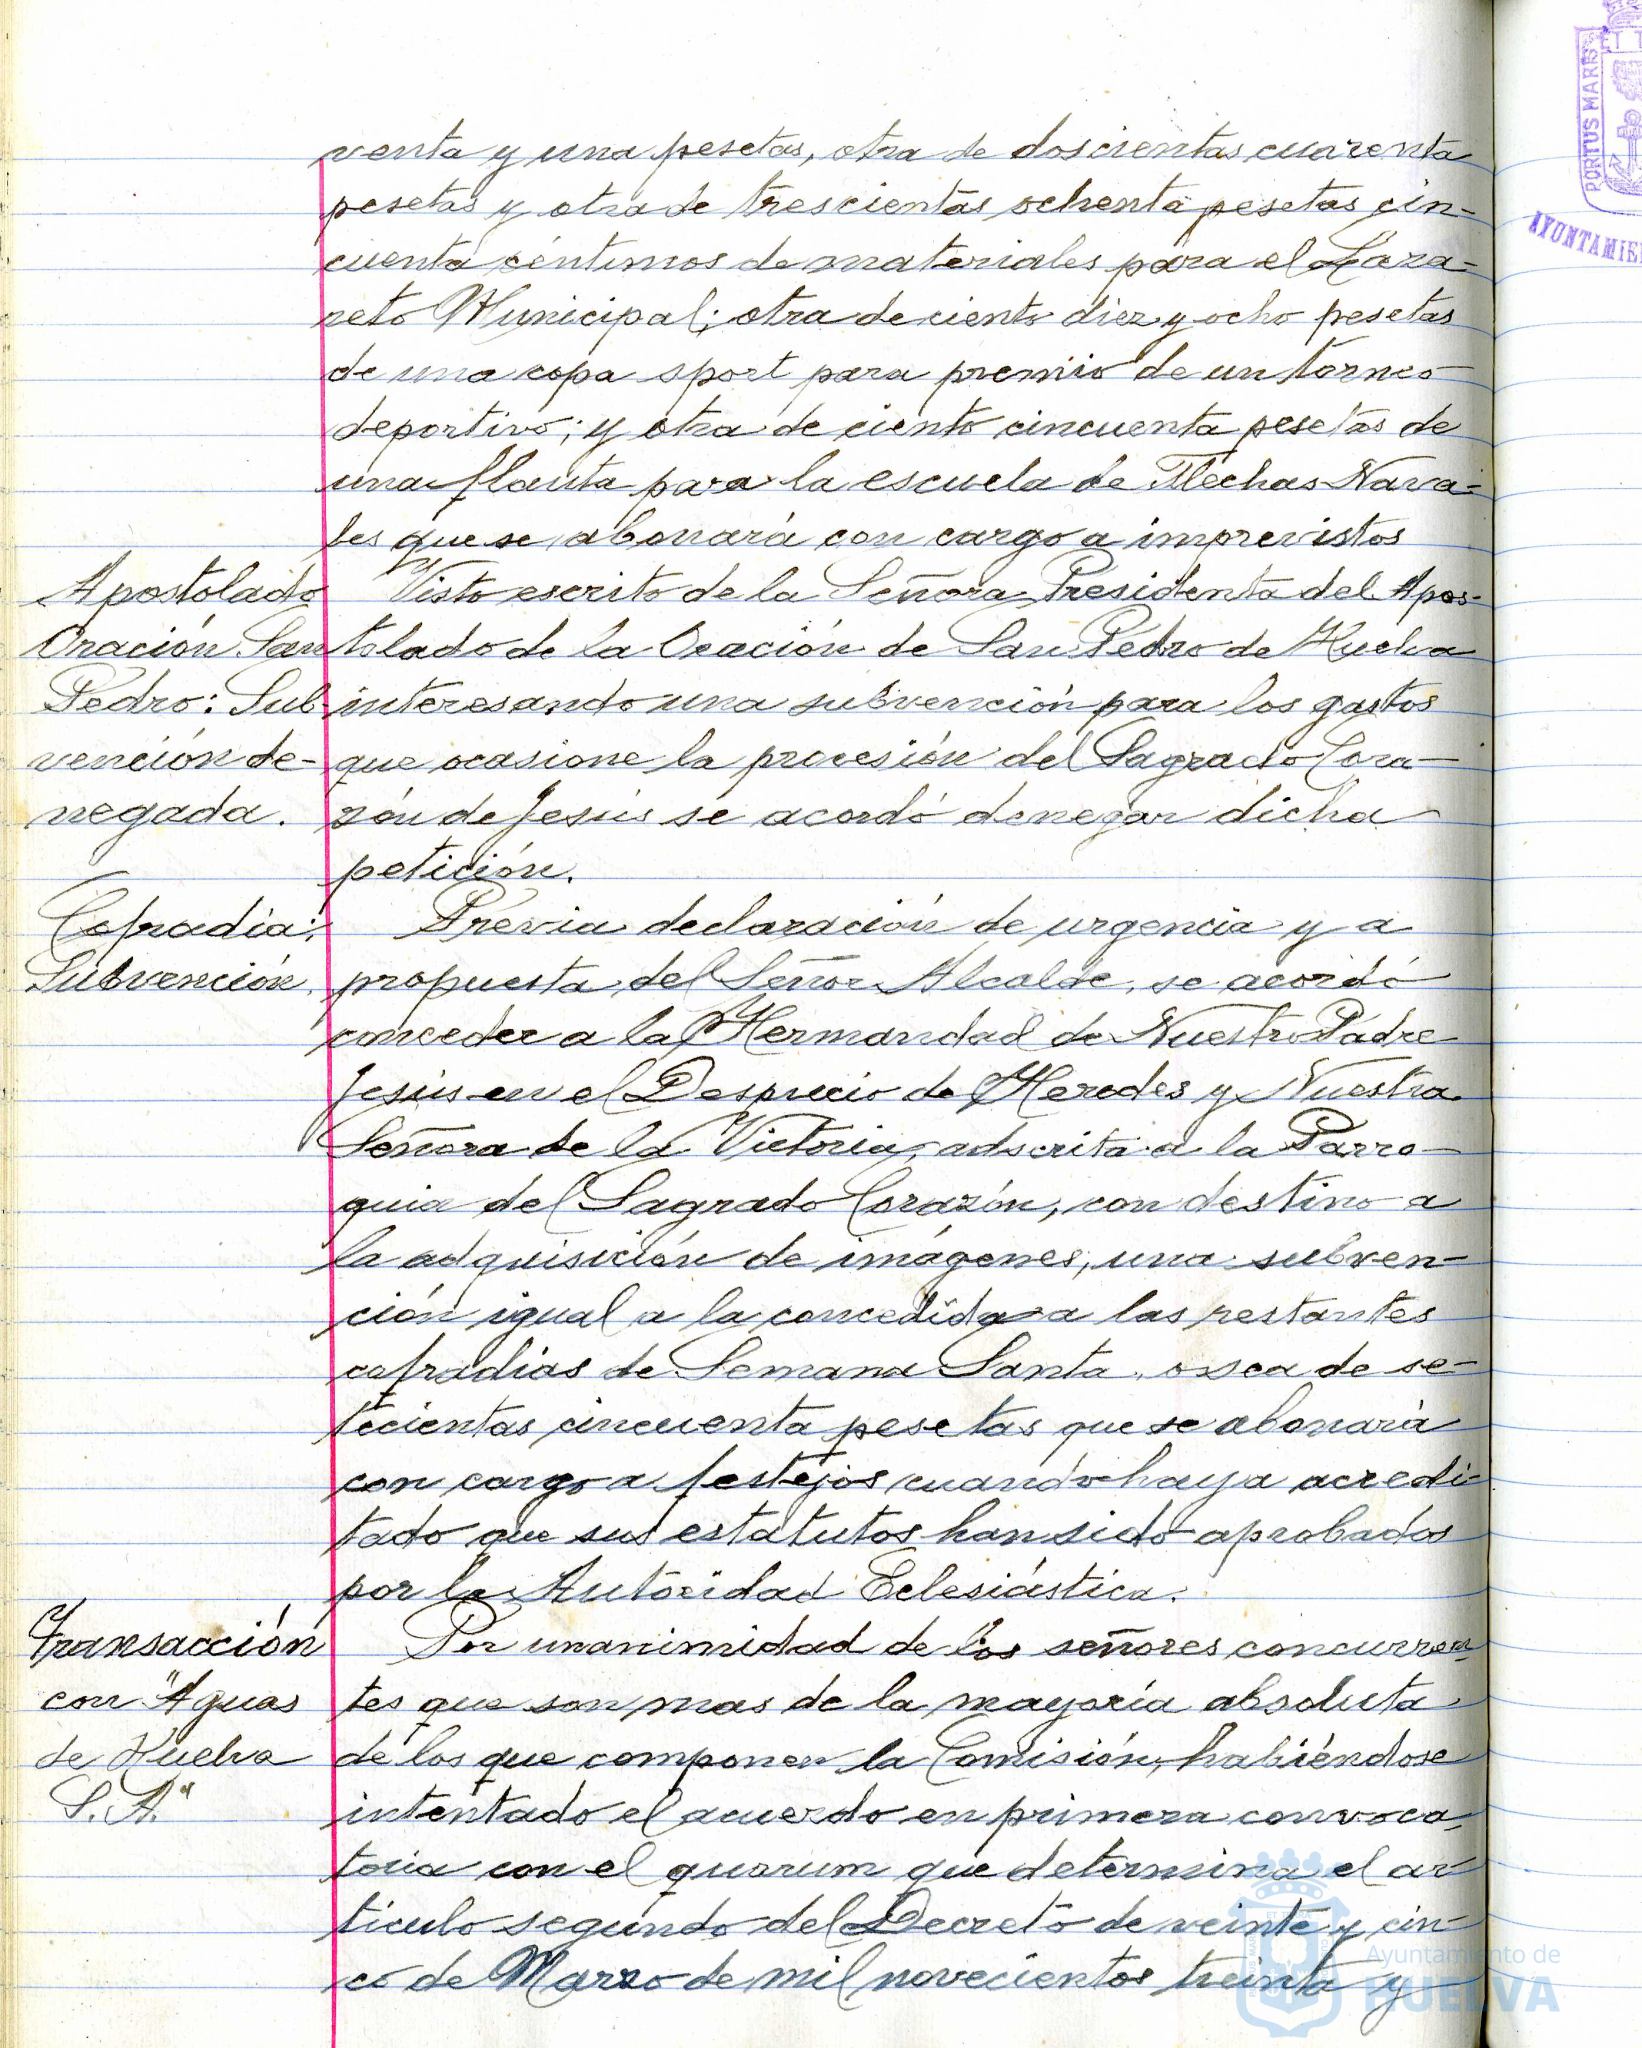 venta y una pesetas, otra de doscientas cuarenta
pesetas y otra de trescientas ochenta pesetas cin-
cuenta céntimos de materiales para el Laza-
reto Municipal; otra de ciento diez y ocho pesetas
de una copa sport para premio de un torneo
deportivo; y otra de ciento cincuenta pesetas de
una flauta para la escuela de Flechas Nava-
les que se abonará con cargo a imprevistos
Apostolado
Oración San
Pedro: Sub
vención de-
negada.
Visto escrito de la Señora Presidenta del Apos-
tolado de la Oración de San Pedro de Huelva
interesando una subvención para los gastos
que ocasione la procesión del Sagrado Cora-
zón de Jesús se acordó denegar dicha
petición.
Cofradía:
Subvención.
Previa declaración de urgencia y a
propuesta del Señor Alcalde, se acordó
conceder a la Hermandad de Nuestro Padre
Jesús en el Desprecio de Herodes y Nuestra
Señora de la Victoria, adscrita a la Parro-
quia del Sagrado Corazón, con destino a
la adquisición de imágenes, una subven-
ción igual a la concedida a las restantes
cofradias de Semana Santa, o sea de se-
tecientas cincuenta pesetas que se abonará
con cargo a festejos cuando haya acredi-
tado que sus estatutos han sido aprobados
por la Autoridad Eclesiástica.
Transacción
con "Aguas
de Huelva
S.A."
Por unanimidad de los señores concurren-
tes que son mas de la mayoría absoluta
de los que componen la Comisión, habiéndose
intentado el acuerdo en primera convoca-
toria con el quorum que determina el ar-
tículo segundo del Decreto de veinte y cin-
co de Marzo de mil novecientos treinta y
PORTUS MARIS
ET T
AYUNTAMIE
Ayuntamiento de
HUELVA